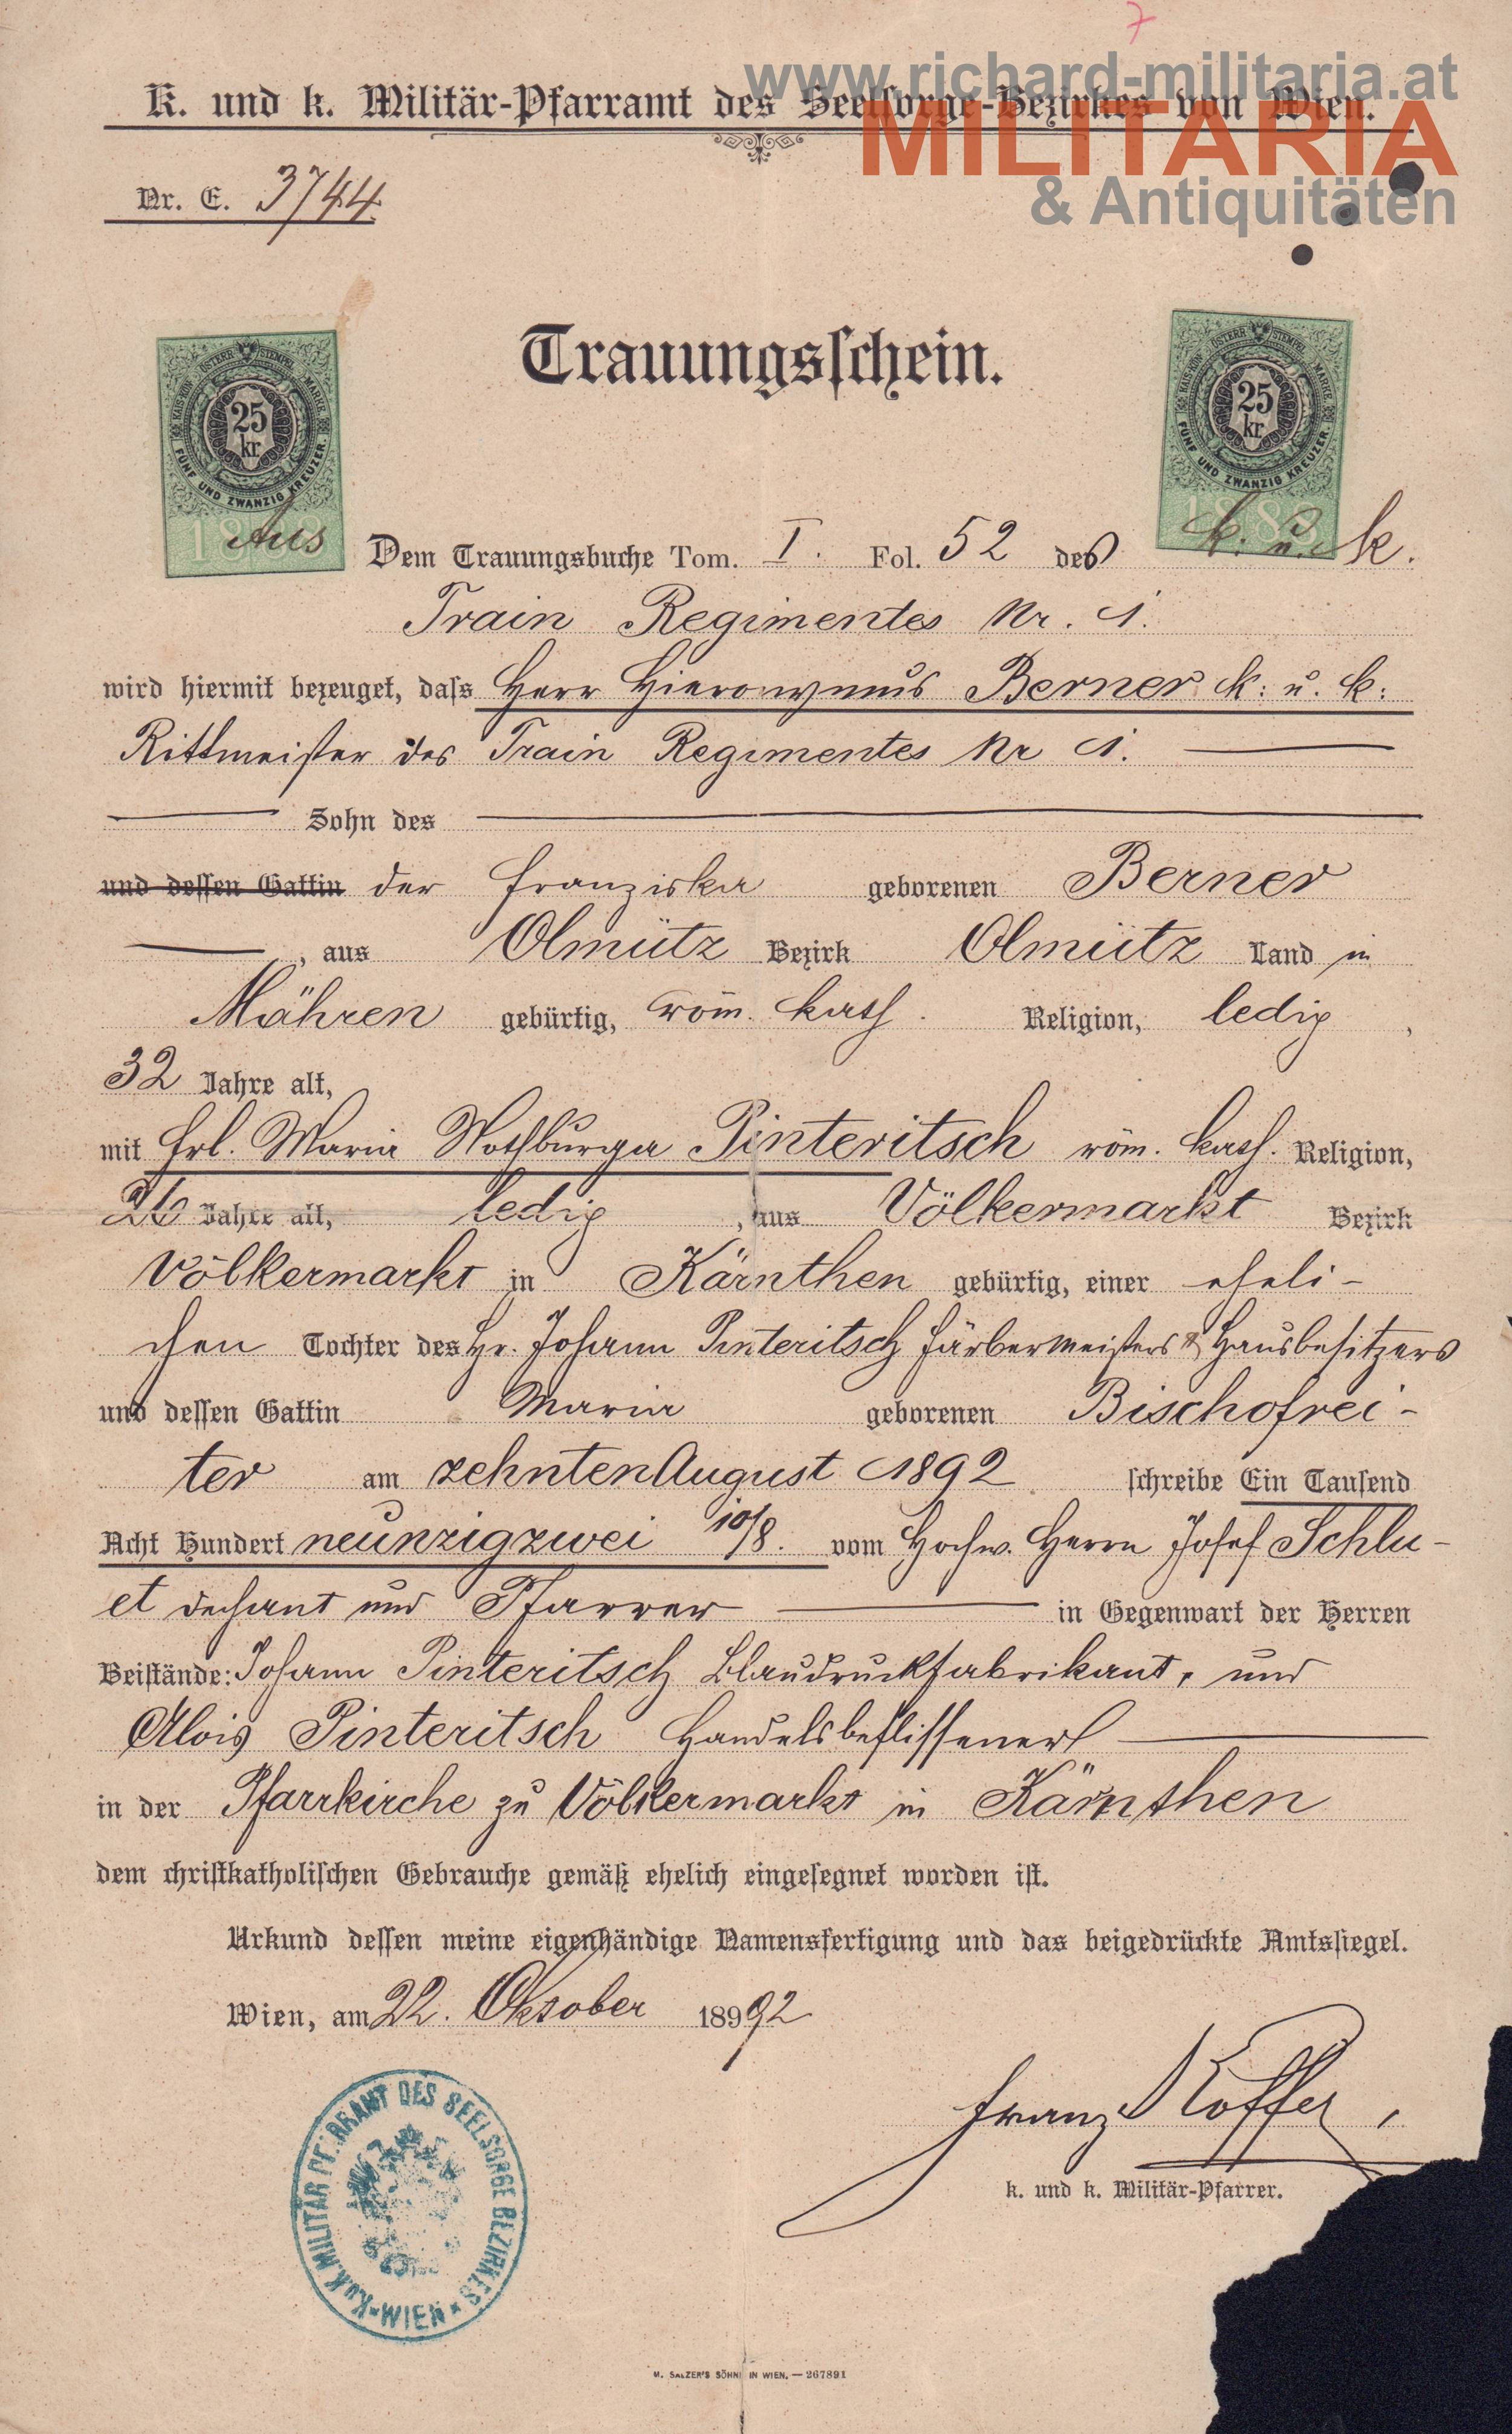 7
www.richard-militaria.at
K. und k. Militär-Pfarramt des Seelsorge-Bezirkes von Wien.
MILITARIA
& Antiquitäten
Nr. E. 3744
Trauungsschein.
KAIS. KÖN. ÖSTERR. STEMPEL MARKE
25 kr
FÜNF UND ZWANZIG KREUZER.
1888
KAIS. KÖN. ÖSTERR. STEMPEL MARKE
25 kr
FÜNF UND ZWANZIG KREUZER.
1888
Aus Dem Trauungsbuche Tom. I. Fol. 52 des k. u. k.
Train Regimentes Nr. 1.
wird hiermit bezeuget, dass Herr Hieronymus Berner k: u. k:
Rittmeister des Train Regimentes Nr 1.
Sohn des
und dessen Gattin der Franziska geborenen Berner
, aus Olmütz Bezirk Olmütz Land in
Mähren gebürtig, röm. kath. Religion, ledig,
32 Jahre alt,
mit Frl. Maria Nothburga Pinteritsch röm. kath. Religion,
26 Jahre alt, ledig, aus Völkermarkt Bezirk
Völkermarkt in Kärnthen gebürtig, einer eheli-
chen Tochter des Hr. Johann Pinteritsch Färbermeisters & Hausbesitzers
und dessen Gattin Maria geborenen Bischofrei-
ter am zehnten August 1892 schreibe Ein Tausend
Acht Hundert neunzigzwei 10/8. vom Hochw. Herrn Josef Schlu-
et Dechant und Pfarrer in Gegenwart der Herren
Beistände: Johann Pinteritsch Blaudruckfabrikant, und
Alois Pinteritsch Handelsbeflissener
in der Pfarrkirche zu Völkermarkt in Kärnthen
dem christkatholischen Gebrauche gemäß ehelich eingesegnet worden ist.
Urkund dessen meine eigenhändige Namensfertigung und das beigedrückte Amtssiegel.
Wien, am 22. Oktober 18992
Franz Koffer,
k. und k. Militär-Pfarrer.
K.u.K. MILITÄR PFARRAMT DES SEELSORGE BEZIRKES
WIEN
M. SALZER'S SÖHNE IN WIEN. — 267891